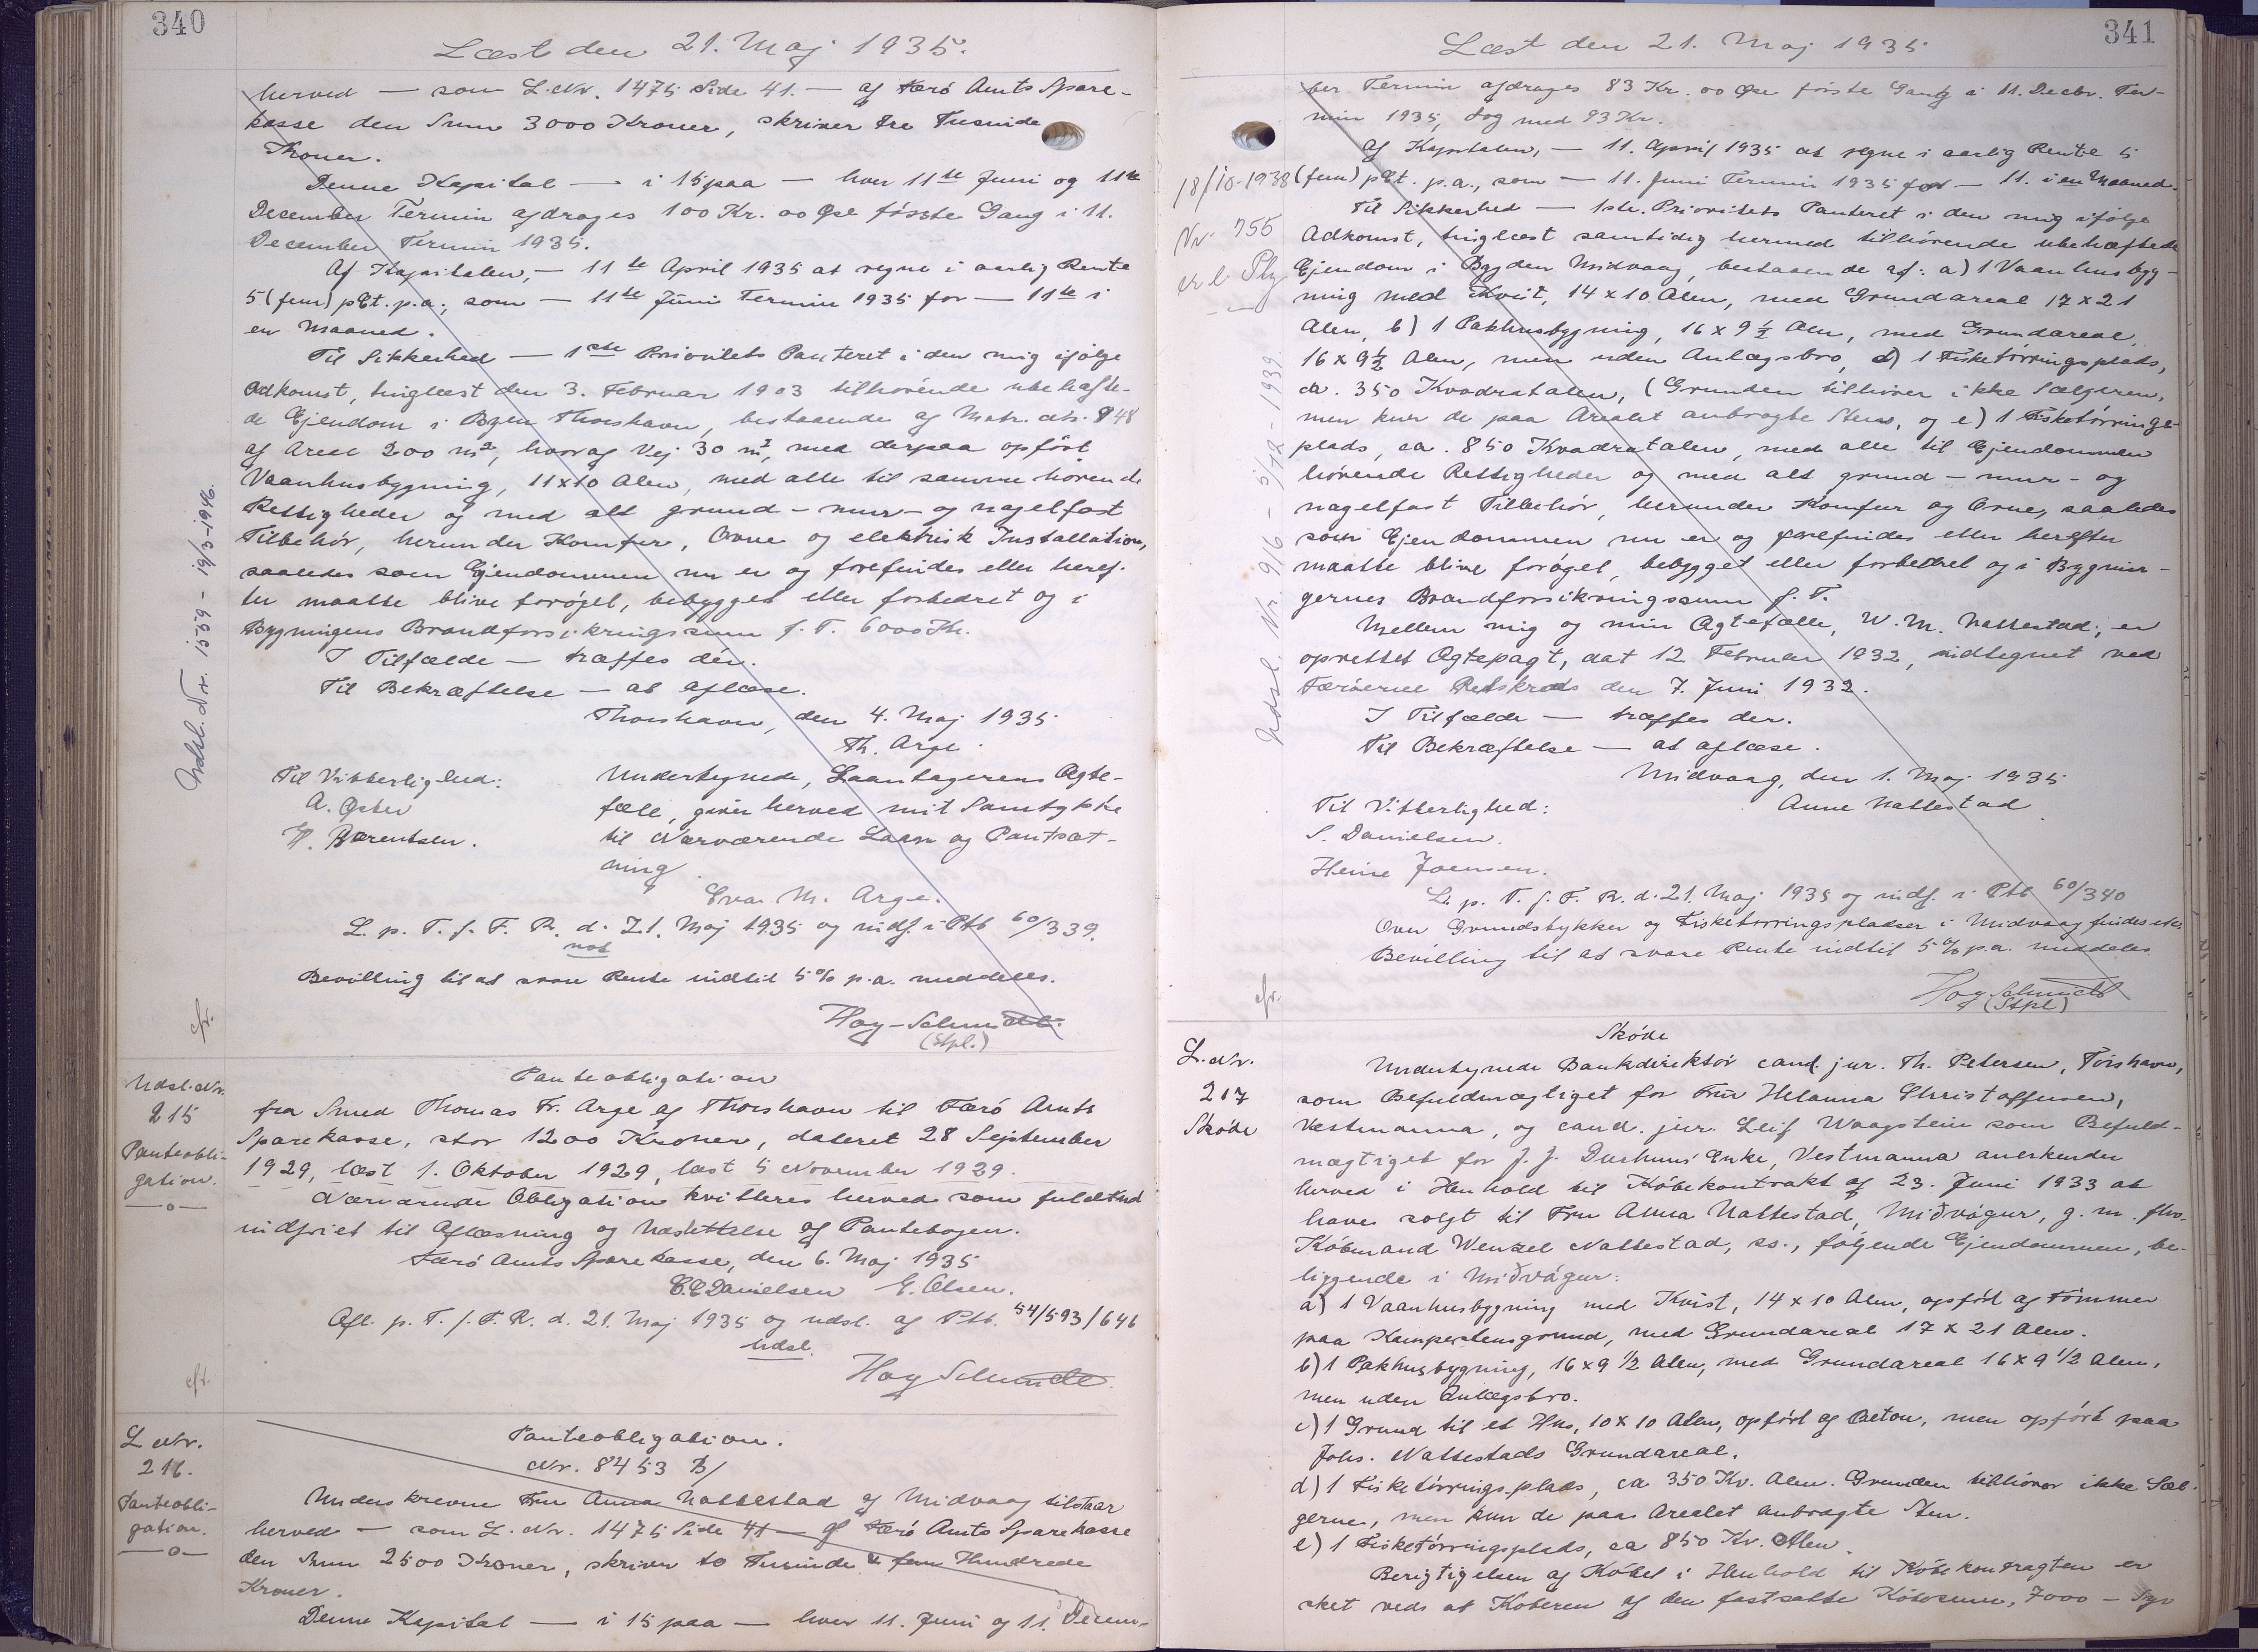 340
Læst den 21. Maj 1935.
herved — som L. Nr. 1475 Side 41. — af Færø Amts Spare-
kasse den Sum 3000 Kroner, skriver tre Tusinde
Kroner.
Denne Kapital — i 15 paa — hver 11te Juni og 11te
December Termin afdrages 100 Kr. 00 Øre første Gang i 11.
December Termin 1935.
Af Kapitalen, — 11te April 1935 at regne i aarlig Rente
5 (fem) pCt. p.a., som — 11te Juni Termin 1935 for — 11te i
en Maaned.
Til Sikkerhed — 1ste Prioritets Panteret i den mig ifølge
Adkomst, tinglæst den 3. Februar 1903 tilhørende ubehæfte-
de Ejendom i Byen Thorshavn, bestaaende af Matr. Nr. 848
af Areal 200 m², hvoraf Vej 30 m², med derpaa opført
Vaanhusbygning, 11x10 Alen, med alle til samme hørende
Rettigheder og med alt grund- mur- og nagelfast
Tilbehør, herunder Komfur, Ovne og elektrisk Installation,
saaledes som Ejendommen nu er og forefindes eller heref-
ter maatte blive forøget, bebygget eller forbedret og i
Bygningens Brandforsikringssum f. T. 6000 Kr.
I Tilfælde — træffes der.
Til Bekræftelse — at aflæse.
Thorshavn, den 4. Maj 1935
Th. Arge.
Til Vitterlighed:
A. Øster
H. Børentsen.
Undertegnede, Laantagerens Ægte-
fælle, giver herved mit Samtykke
til Nærværende Laan og Pantsæt-
ning.
Eva M. Arge.
L. p. T. f. F. R. d. 21. Maj 1935 og indf. i Ptb 60/339.
not
Bevilling til at svare Rente indtil 5% p.a. meddeles.
Hoy-Schmidt.
(Stpl.)
Udsl. Nr. 1559 - 19/3-1946.
cfr.
Udsl. Nr.
215
Panteobli-
gation.
Panteobligation
fra Smed Thomas Fr. Arge af Thorshavn til Færø Amts
Sparekasse, stor 1200 Kroner, dateret 28 September
1929, læst 1. Oktober 1929, læst 5 November 1929.
Nærværende Obligation kvitteres herved som fuldtud
indfriet til Aflæsning og Udslettelse af Pantebogen.
Færø Amts Sparekasse, den 6. Maj 1935
C.C. Danielsen G. Olsen.
Afl. p. T. f. F. R. d. 21. Maj 1935 og udsl. af Ptb. 54/593/646
Udsl.
Hoy Schmidt.
cfr.
L Nr.
216.
Panteobli-
gation.
Panteobligation.
Nr. 8453 B/
Underskrevne Fru Anna Nattestad af Midvaag tilstaar
herved — som L. Nr. 1475 Side 41 — af Færø Amts Sparekasse
den Sum 2500 Kroner, skriver to Tusinde & fem Hundrede
Kroner.
Denne Kapital — i 15 paa — hver 11. Juni og 11. Decem-
341
Læst den 21. Maj 1935
ber Termin afdrages 83 Kr. 00 Øre første Gang i 11. Decbr. Ter-
min 1935, dog med 93 Kr.
Af Kapitalen, — 11. April 1935 at regne i aarlig Rente 5
(fem) pCt. p.a., som — 11. Juni Termin 1935 for — 11. i en Maaned.
Til Sikkerhed — 1ste Prioritets Panteret i den mig ifølge
Adkomst, tinglæst samtidig hermed tilhørende ubehæftede
Ejendom i Bygden Midvaag, bestaaende af: a) 1 Vaanhusbyg-
ning med Kvist, 14 x 10 Alen, med Grundareal 17 x 21
Alen, b) 1 Pakhusbygning, 16 x 9 ½ Alen, med Grundareal
16 x 9½ Alen, men uden Anlægsbro, d) 1 Fisketørringsplads,
ca. 350 Kvadratalen, (Grunden tilhører ikke Sælgeren,
men kun de paa Arealet anbragte Sten, og e) 1 Fisketørrings-
plads, ca. 850 Kvadratalen, med alle til Ejendommen
hørende Rettigheder og med alt grund- mur- og
nagelfast Tilbehør, herunder Komfur og Ovne, saaledes
som Ejendommen nu er og forefindes eller herefter
maatte blive forøget, bebygget eller forbedret og i Bygnin-
gernes Brandforsikringssum f. T.
Mellem mig og min Ægtefælle, W. M. Nattestad, er
oprettet Ægtepagt, dat 12 Februar 1932, indtegnet ved
Færøernes Retskreds den 7. Juni 1932.
I Tilfælde — træffes der.
Til Bekræftelse — at aflæse.
Midvaag, den 1. Maj 1935
Anne Nattestad
Til Vitterlighed:
S. Danielsen.
Heine Joensen.
L. p. T. f. F. R. d. 21. Maj 1935 og indf. i Ptb 60/340
Over Grundstykker og Fisketørringspladser i Midvaag findes ikke
Bevilling til at svare Rente indtil 5% p.a. meddeles
Hoy Schmidt
(Stpl)
18/10-1938
Nr. 755
Udsl. Nr. 916 - 5/12 - 1939.
cfr.
L. Nr.
217
Skøde
Skøde
Undertegnede Bankdirektør cand. jur. Th. Petersen, Tórshavn,
som Befuldmægtiget for Frú Helanna Christoffersen,
Vestmanna, og cand. jur. Leif Waagstein som Befuld-
mægtiget for J. J. Durhuus' Enke, Vestmanna anerkender
herved i Henhold til Købekontrakt af 23. Juni 1933 at
have solgt til Fru Anna Nattestad, Miðvágur, g. m. fhv.
Købmand Wenzel Nattestad, ss., følgende Ejendommen, be-
liggende i Miðvágur:
a) 1 Vaanhusbygning med Kvist, 14 x 10 Alen, opført af Tømmer
paa Kampestensgrund, med Grundareal 17 x 21 Alen.
b) 1 Pakhusbygning, 16 x 9 1/2 Alen, med Grundareal 16 x 9 1/2 Alen,
men uden Anlægsbro.
c) 1 Grund til et Hus, 10 x 10 Alen, opført af Beton, men opført paa
Johs. Nattestads Grundareal.
d) 1 Fisketørringsplads, ca 350 Kv. Alen. Grunden tilhører ikke Sæl-
gerne, men kun de paa Arealet anbragte Sten.
e) 1 Fisketørringsplads, ca 850 Kv. Alen.
Berigtigelsen af Købet i Henhold til Købekontragten er
sket veds at Køberen af den fastsatte Købesum, 7000 — Syv